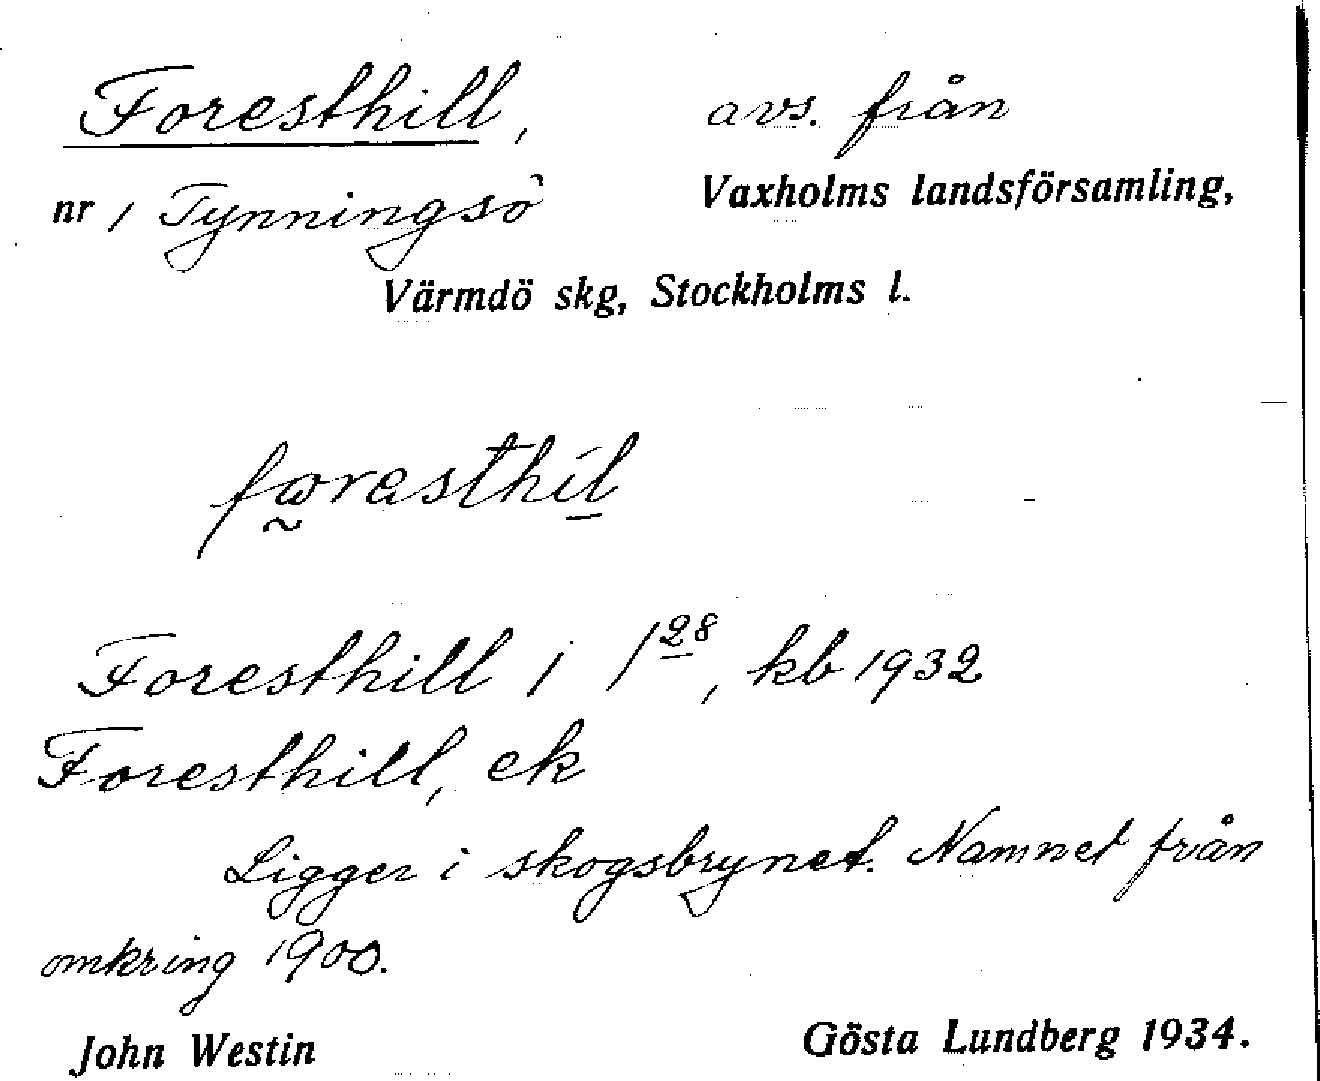 Foresthill, avs. från
nr 1 Tynningsö Vaxholms landsförsamling,
Värmdö skg, Stockholms l.
foresthil
Foresthill 1 1 28, kb 1932
Foresthill, ek
Ligger i skogsbrynet. Namnet från
omkring 1900.
John Westin Gösta Lundberg 1934.